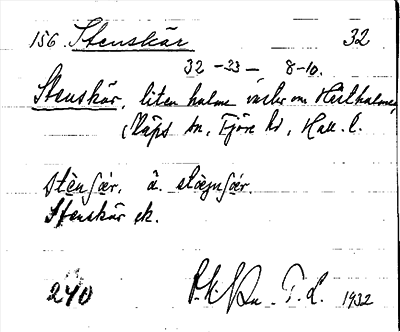 156. Stenskär 32
32 -33- 8-10.
Stenskär, liten holme väster om Hästholmen,
Släps sn, Fjäre hd, Hall. l.
Stenskär ek.
240 1932